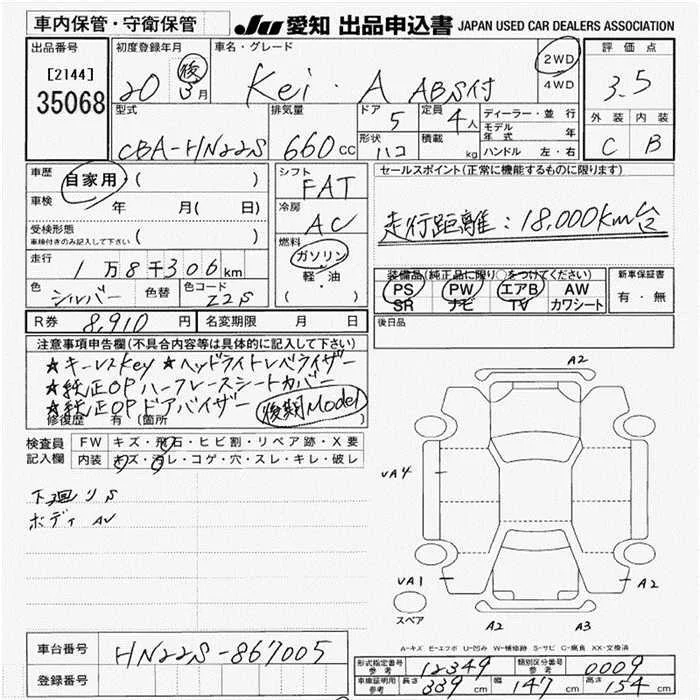 車内保管・守衛保管
JU 愛知 出品申込書 JAPAN USED CAR DEALERS ASSOCIATION
出品番号
[2144]
35068
初度登録年月
20 後 3月
車名・グレード
Kei・A ABS付
2WD
4WD
評価点
3.5
外装 内装
C B
型式
CBA-HN22S
排気量
660cc
ドア
5
定員
4人
形状
ハコ
積載
kg
ディーラー・並行
モデル年式 年
ハンドル 左・右
車歴
自家用・( )
車検 年 月(日)
受検形態
車検付きのみ記入して下さい ( )
走行
1万8千306km
色
シルバー
色替
色コード
Z2S
シフト
FAT
冷房
AC
燃料
ガソリン
軽・油
( )
セールスポイント(正常に機能するものに限ります)
走行距離:18,000Km台
装備品(純正品に限り○をつけてください)
PS PW エアB AW
SR ナビ TV カワシート
新車保証書
有・無
R券 8,910円 名変期限 月 日
後日品
注意事項申告欄(不具合内容等は具体的に記入して下さい)
★キーレスKey ★ヘッドライトレベライザー
★純正OPハーフレースシートカバー
★純正OPドアバイザー 後期Model
修復歴 有(箇所 )
検査員記入欄
FW キズ・飛石・ヒビ割・リペア跡・X要
内装 キズ・汚レ・コゲ・穴・スレ・キレ・破レ
下廻り S
ボディ AU
A2
UA4
UA1
A2
A2
A3
スペア
A-キズ E-エクボ U-凹み W-補修跡 S-サビ C-腐食 XX-交換済
車台番号
HN22S-867005
登録番号
形式指定番号参考 12349 類別区分番号参考 0009
車庫証明用参考 長さ 339cm 幅 147cm 高さ 154cm